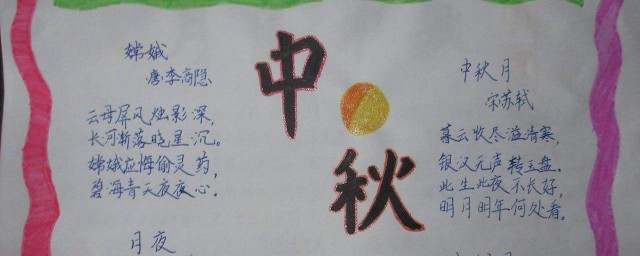 嫦娥
唐·李商隐
云母屏风烛影深,
长河渐落晓星沉。
嫦娥应悔偷灵药,
碧海青天夜夜心.
月夜
中
秋
中秋月
宋苏轼
暮云收尽溢清寒,
银汉无声转玉盘.
此生此夜不长好,
明月明年何处看.